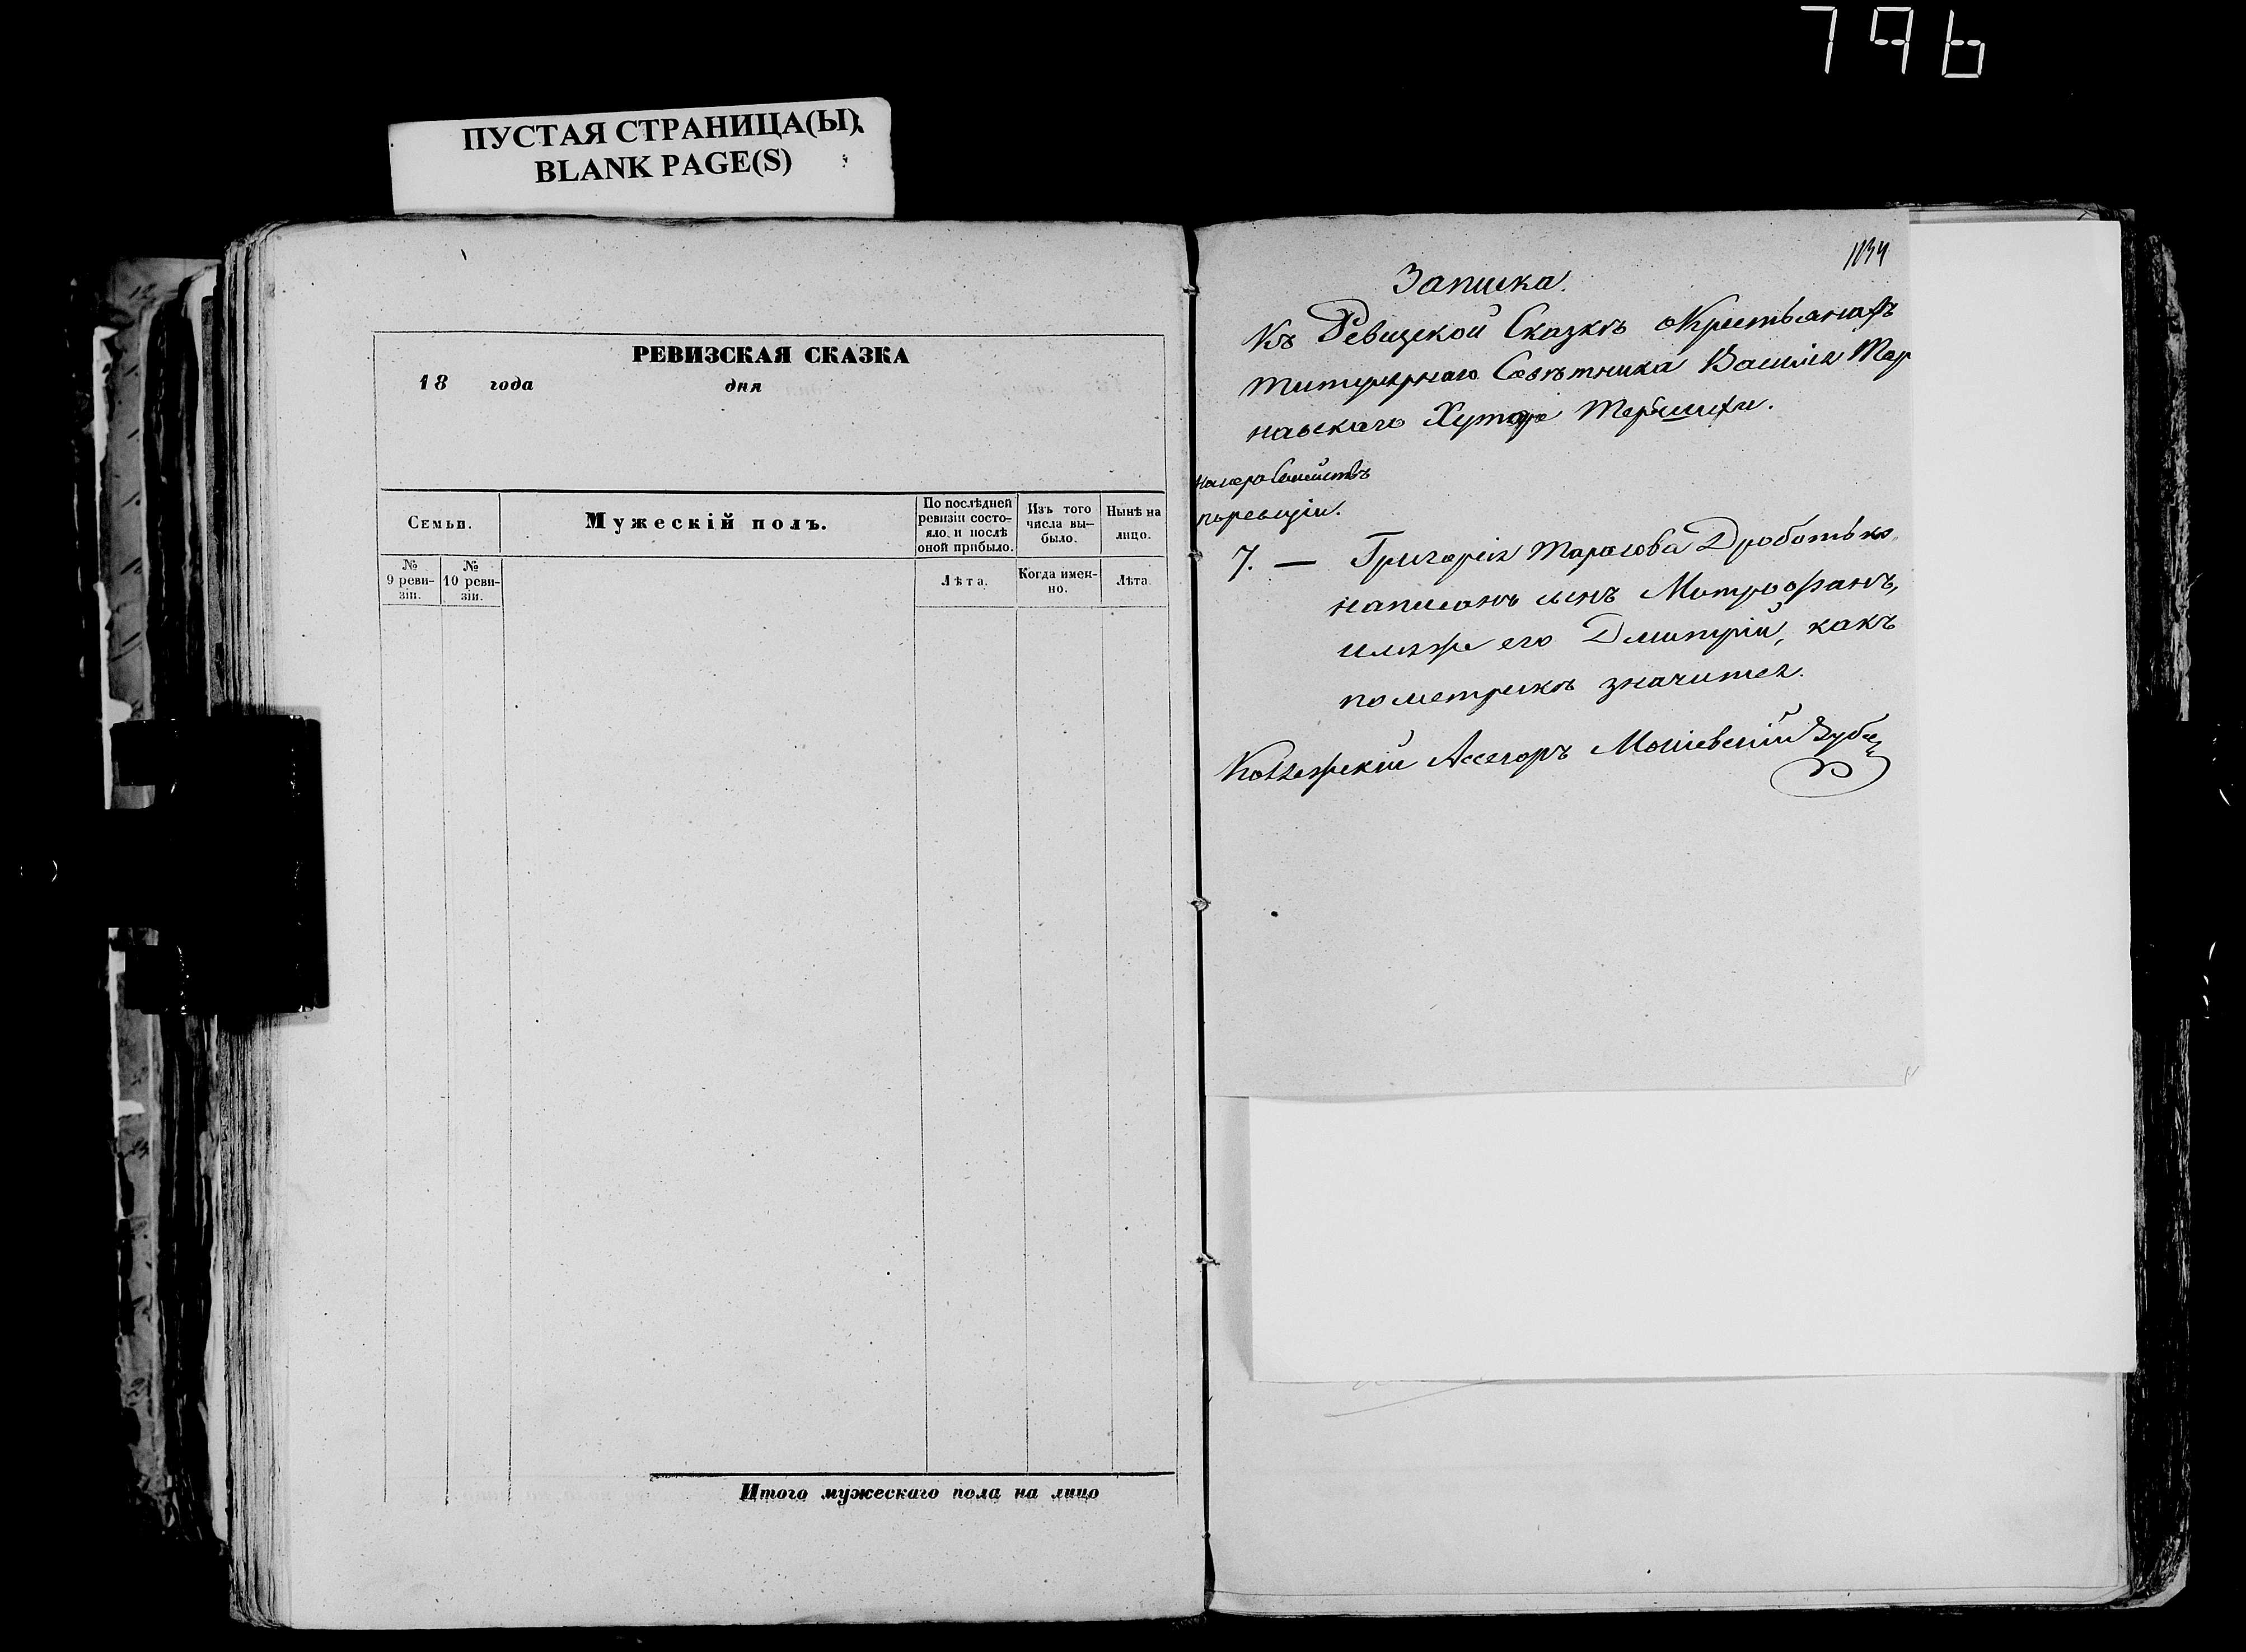 796
ПУСТАЯ СТРАНИЦА(Ы)
BLANK PAGE(S)
РЕВИЗСКАЯ СКАЗКА
18 года дня
Семьи.
Мужескій полъ.
По послѣдней ревизіи состо-
яло, и послѣ оной прибыло.
Изъ того числа вы-
было.
Нынѣ на лицо.
№ 9 реви-
зіи.
№ 10 реви-
зіи.
Лѣта.
Когда имен-
но.
Лѣта
Итого мужескаго пола на лицо
1034
Записка.
Къ Ревизской Сказкѣ о Крестьянахъ
Титулярнаго Совѣтника Василія Тар
навскаго Хутора
номера Семействъ
по ревизіи.
7. — Григорія Тарасова Дроботько
написанъ сынъ Митрофанъ,
имя же его Дмитрій, какъ
по метрикѣ значится.
Коллежскій Асессоръ